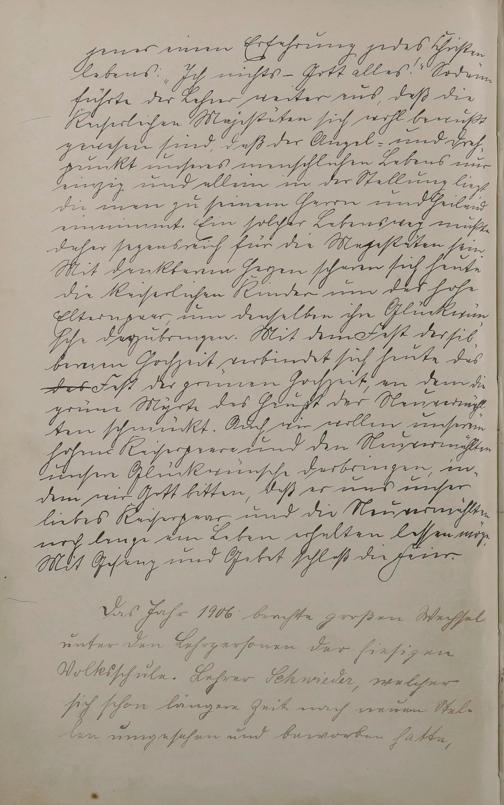 jener einen Erfahrung jedes Christen
lebens: „Ich nichts – Gott alles!" Sodann
führte der Lehrer weiter aus, daß die
Kaiserlichen Majestäten sich wohl bewußt
gewesen sind, daß der Angel- und Dreh-
punkt unseres menschlichen Lebens nur
einzig und allein in der Stellung liegt
die man zu seinem Herrn und Heiland
einnimmt. Ein solcher Lebensweg mußte
daher segensreich für die Majestäten sein.
Mit dankbarem Herzen scharen sich heute
die Kaiserlichen Kinder um das hohe
Elternpaar, um denselben ihre Glückwün
sche darzubringen. Mit dem Fest der sil
bernen Hochzeit verbindet sich heute das
das Fest der grünen Hochzeit, an dem die
grüne Myrte das Haupt der Neuvermähl-
ten schmückt. Auch wir wollen unserem
hohen Kaiserpaare und den Neuvermählten
unsere Glückwünsche darbringen, in-
dem wir Gott bitten, daß er uns unser
liebes Kaiserpaar und die Neuvermählten
noch lange am Leben erhalten lassen möge.
Mit Gesang und Gebet schloß die Feier.
Das Jahr 1906 brachte großen Wechsel
unter den Lehrpersonen der hiesigen
Volksschule. Lehrer Schwieder, welcher
sich schon längere Zeit nach neuen Stel-
len umgesehen und beworben hatte,